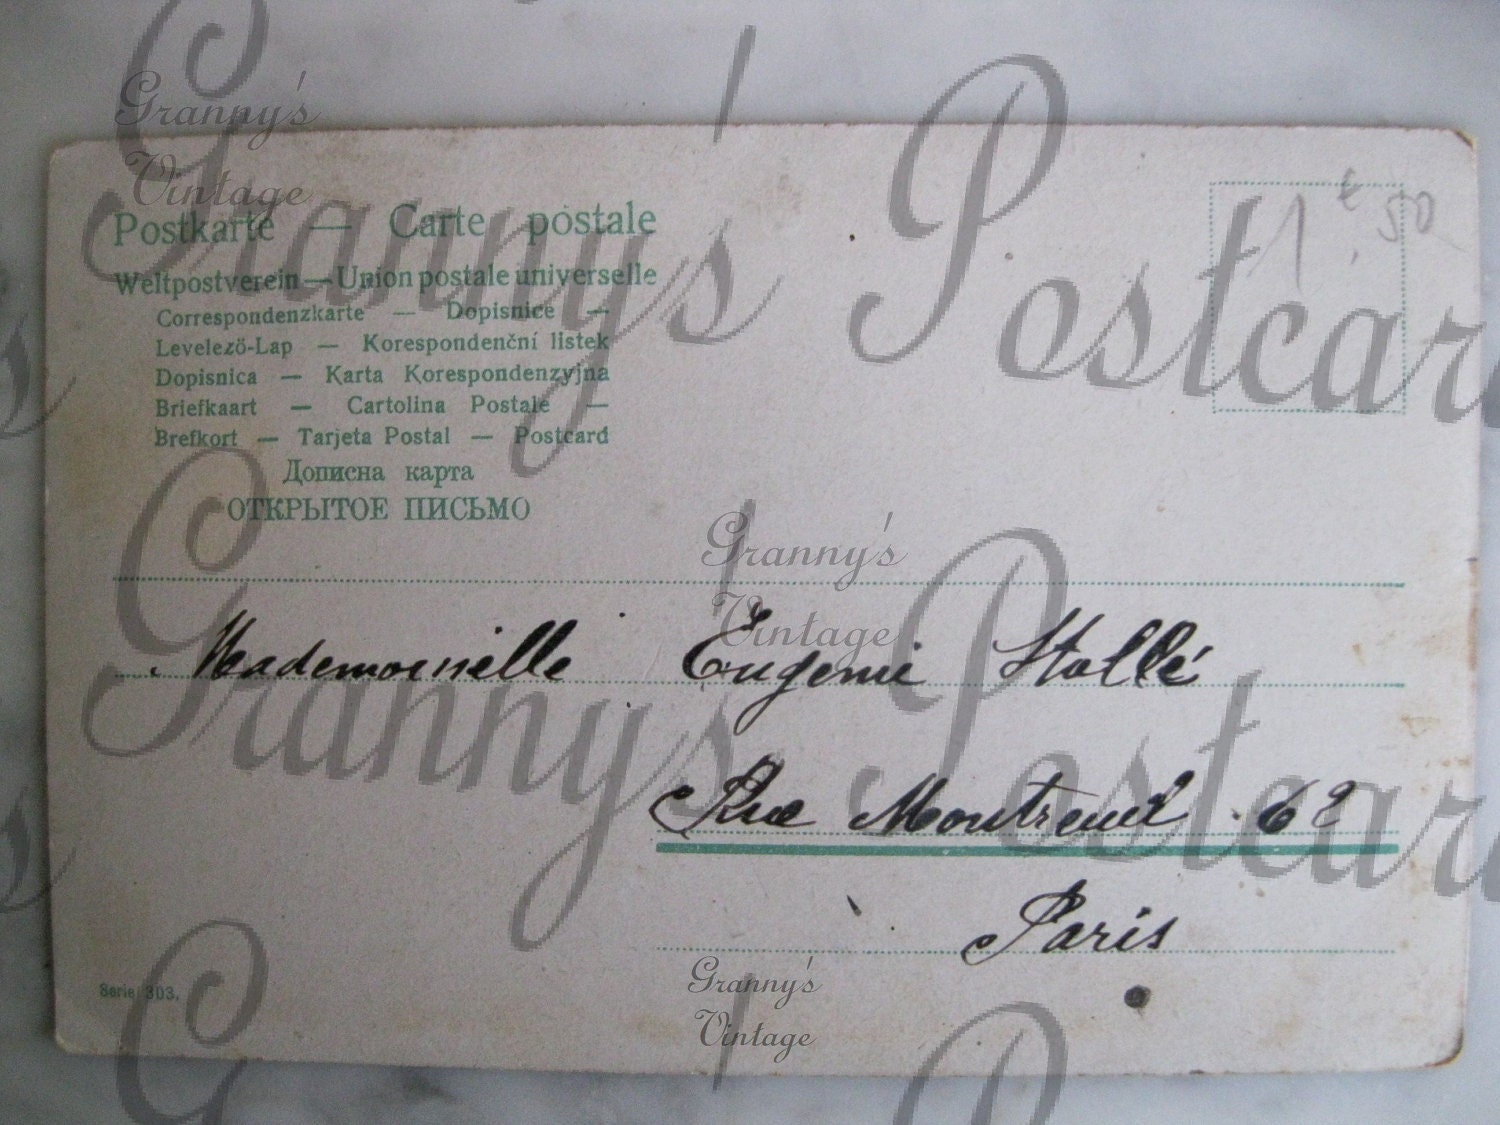 Granny's
Vintage
Granny's Postcar
Postkarte — Carte postale
1 € 50
Weltpostverein — Union postale universelle
Correspondenzkarte — Dopisnice —
Levelező-Lap — Korespondenční lístek
Dopisnica — Karta Korespondenzyjna
Briefkaart — Cartolina Postale —
Brefkort — Tarjeta Postal — Postcard
Дописна карта
ОТКРЫТОЕ ПИСЬМО
Granny's
Vintage
Granny's Postcar
Mademoiselle Eugenie Stollé
Rue Montreuil 62
Paris
Granny's
Vintage
Serie 303.